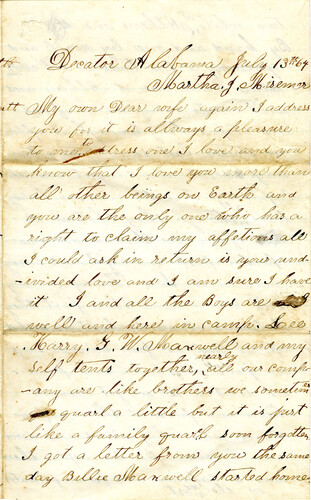 Decator Alabama July 13th 64
Martha J Misemor
My own Dear wife again I address
you for it is allways a pleasure
to me to adress one I love and you
know that I love you more than
all other beeings on Earth and
you are the only one who has a
right to claim my affetions all
I could ask in return is your und-
-ivided love and I am sure I have
it I and all the Boys are
well and here in camp. Lee
Marry, G. W. Maxwell and my
self tents together, nearly all our comp-
-any are like brothers we sometimes
quarl a little but it is just
like a family quarl soon forgotten
I got a letter from you the same
day Billie Maxwell started home